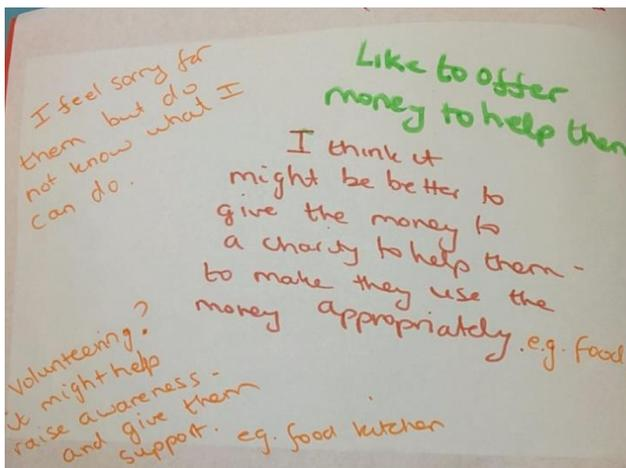 I feel sorry for
them but do
not know what I
can do.
Like to offer
money to help them
I think it
might be better to
give the money to
a charity to help them -
to make they use the
money appropriately. e.g. food
Volunteering?
it might help
raise awareness -
and give them
support. eg. food kitchen